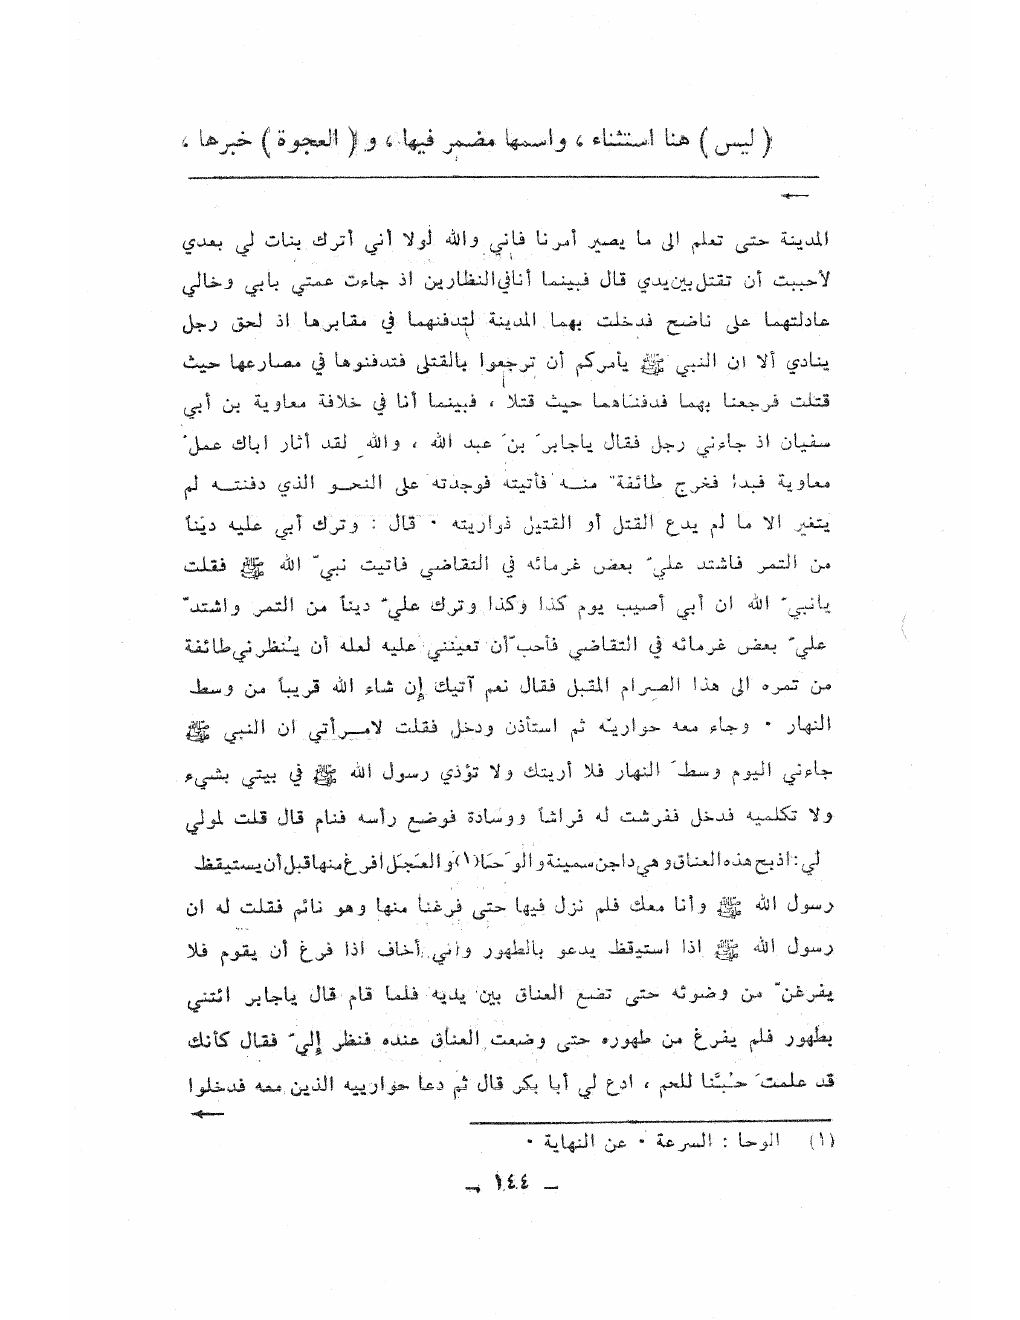 ( ليس ) هنا استثناء ، واسمها مضمر فيها ، و ( العجوة ) خبرها ،
←
المدينة حتى تعلم الى ما يصير أمرنا فاني والله لولا أني أترك بنات لي بعدي
لأحببت أن تقتل بين يدي قال فبينما أنا في النظارين اذ جاءت عمتي بابي وخالي
عادلتهما على ناضح فدخلت بهما المدينة لتدفنهما في مقابرها اذ لحق رجل
ينادي ألا ان النبي ﷺ يأمركم أن ترجعوا بالقتلى فتدفنوها في مصارعها حيث
قتلت فرجعنا بهما فدفناهما حيث قتلا ، فبينما أنا في خلافة معاوية بن أبي
سفيان اذ جاءني رجل فقال ياجابرَ بنَ عبد الله ، والله لقد أثار اباك عملُ
معاوية فبدا فخرج طائفةٌ منه فأتيته فوجدته على النحو الذي دفنته لم
يتغير الا ما لم يدع القتل أو القتيل ذواريته . قال : وترك أبي عليه ديناً
من التمر فاشتد عليّ بعض غرمائه في التقاضي فاتيت نبيّ الله ﷺ فقلت
يانبيّ الله ان أبي أصيب يوم كذا وكذا وترك عليّ ديناً من التمر واشتدّ
عليّ بعض غرمائه في التقاضي فأحبّ أن تعينني عليه لعله أن يُنظرني طائفة
من تمره الى هذا الصرام المقبل فقال نعم آتيك إن شاء الله قريباً من وسط
النهار . وجاء معه حواريّه ثم استأذن ودخل فقلت لامرأتي ان النبي ﷺ
جاءني اليوم وسطَ النهار فلا أريتك ولا تؤذي رسول الله ﷺ في بيتي بشيء
ولا تكلميه فدخل ففرشت له فراشاً ووسادة فوضع رأسه فنام قال قلت لمولي
لي : اذبح هذه العناق وهي داجن سمينة والوَحَا(١) والعَجَل افرغ منها قبل أن يستيقظ
رسول الله ﷺ وأنا معك فلم نزل فيها حتى فرغنا منها وهو نائم فقلت له ان
رسول الله ﷺ اذا استيقظ يدعو بالطهور واني أخاف اذا فرغ أن يقوم فلا
يفرغنّ من وضوئه حتى تضع العناق بين يديه فلما قام قال ياجابر ائتني
بطهور فلم يفرغ من طهوره حتى وضعت العناق عنده فنظر إليّ فقال كأنك
قد علمتَ حُبَّنا للحم ، ادع لي أبا بكر قال ثم دعا حوارييه الذين معه فدخلوا
←
(١) الوحا : السرعة . عن النهاية .
– ١٤٤ –